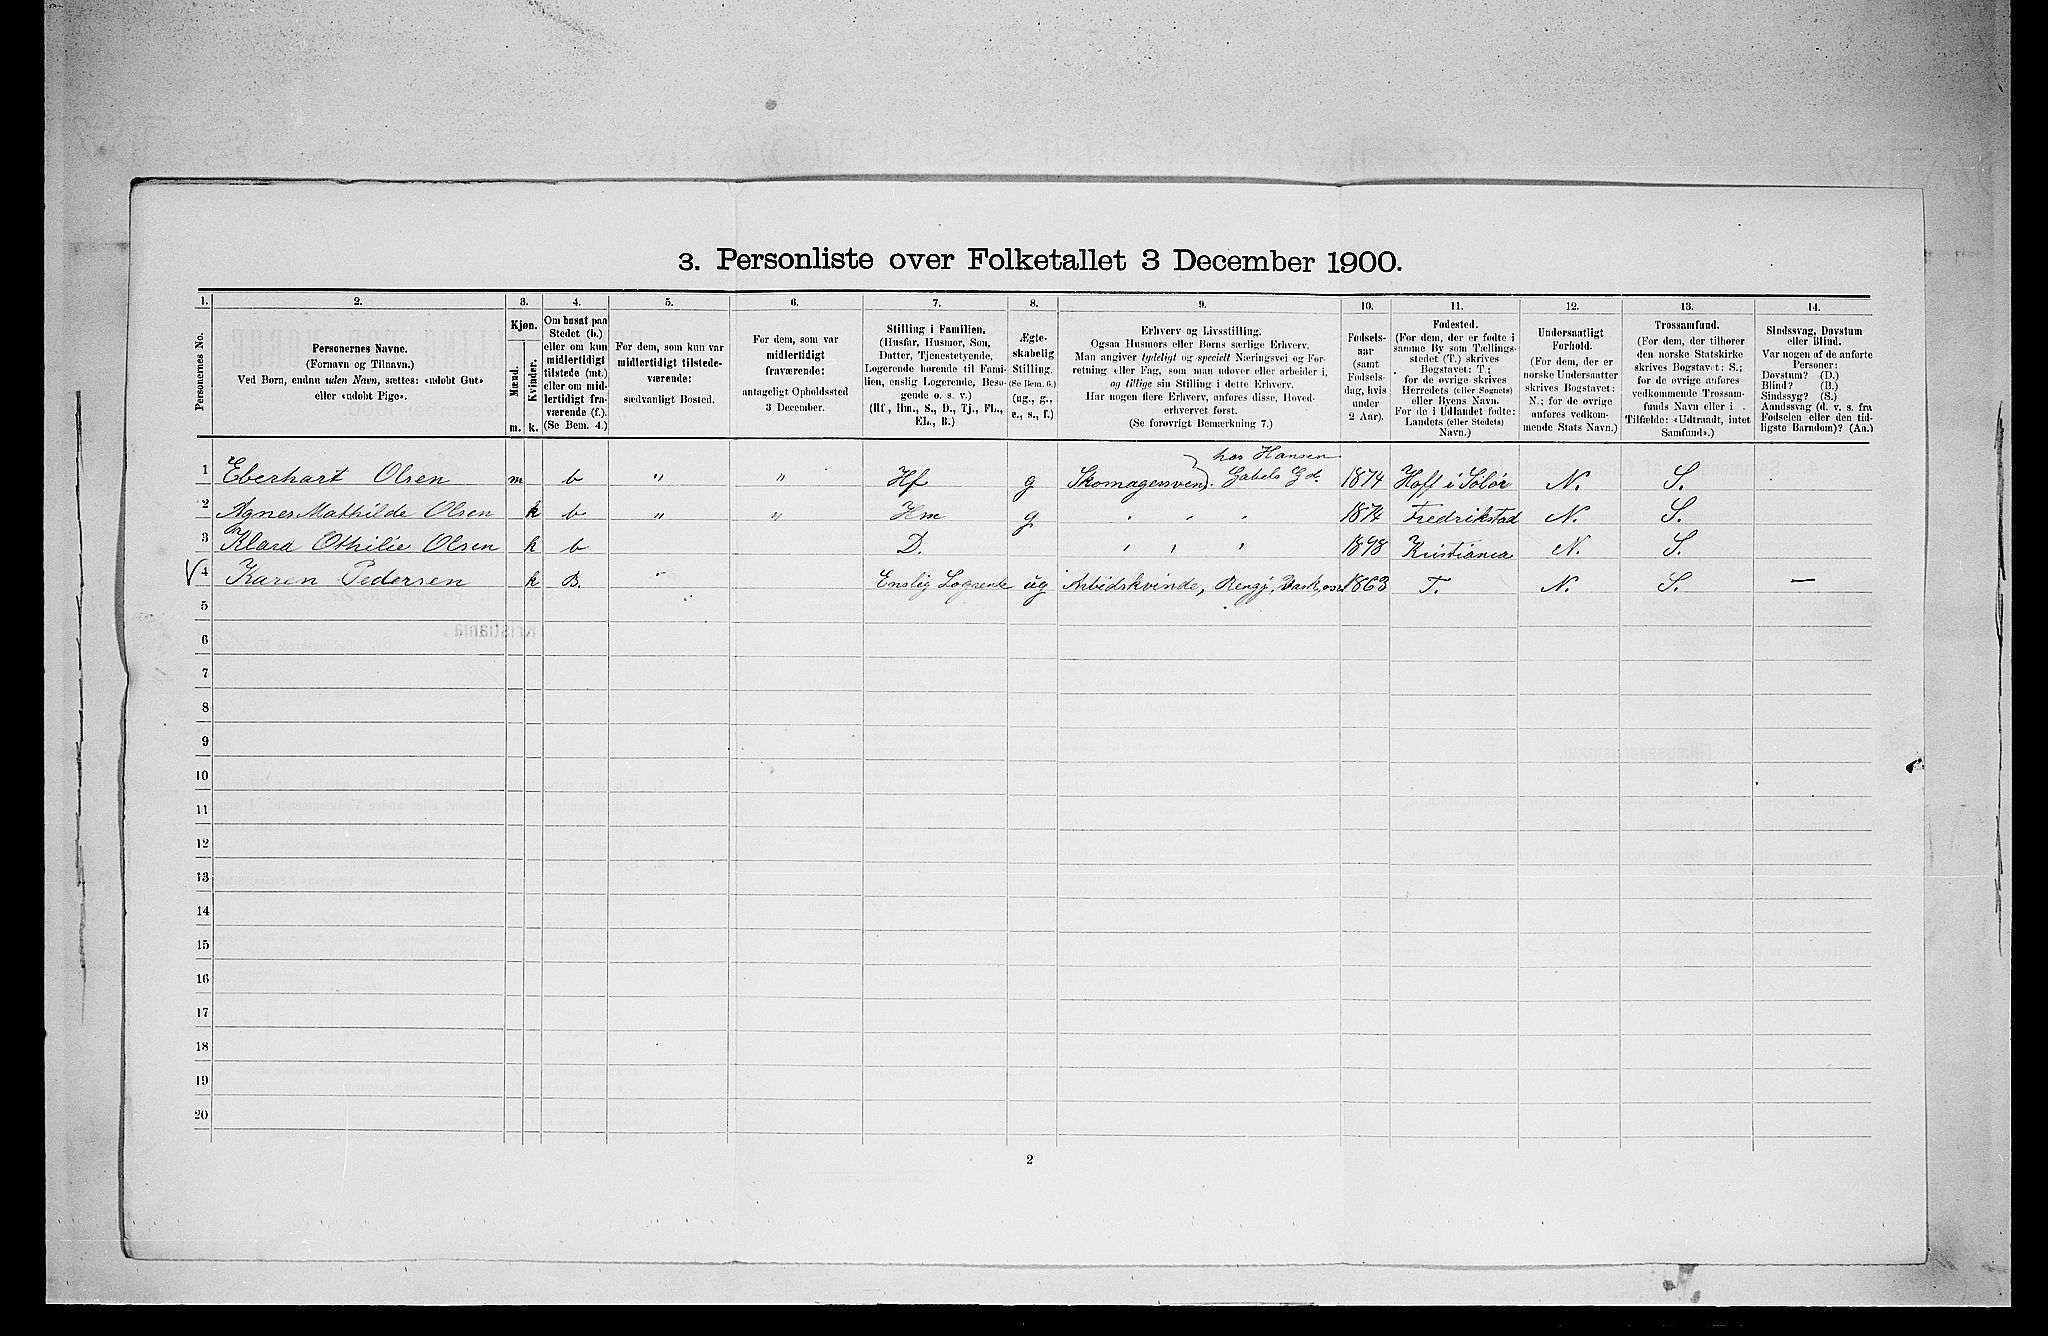 3. Personliste over Folketallet 3 December 1900.
1. 2. 3. 4. 5. 6. 7. 8. 9. 10. 11. 12. 13. 14.
Personernes No.
Personernes Navne.
(Fornavn og Tilnavn.)
Ved Børn, endnu uden Navn, sættes: «udøbt Gut»
eller «udøbt Pige».
Kjøn.
Mænd.
Kvinder.
m. k.
Om bosat paa
Stedet (b.)
eller om kun
midlertidigt
tilstede (mt.)
eller om mid-
lertidigt fra-
værende (f.).
(Se Bem. 4.)
For dem, som kun var
midlertidigt tilstede-
værende:
sædvanligt Bosted.
For dem, som var
midlertidigt
fraværende:
antageligt Opholdssted
3 December.
Stilling i Familien.
(Husfar, Husmor, Søn,
Datter, Tjenestetyende,
Logerende hørende til Fami-
lien, enslig Logerende, Besø-
gende o. s. v.)
(Hf., Hm., S., D., Tj., FL.,
EL., B.)
Ægte-
skabelig
Stilling.
(Se Bem. 6.)
(ug., g.,
e., s., f.)
Erhverv og Livsstilling.
Ogsaa Husmors eller Børns særlige Erhverv.
Man angiver tydeligt og specielt Næringsvei og For-
retning eller Fag, som man udøver eller arbeider i,
og tillige sin Stilling i dette Erhverv.
Har nogen flere Erhverv, anføres disse, Hoved-
erhvervet først.
(Se forøvrigt Bemærkning 7.)
Fødsels-
aar
(samt
Fødsels-
dag, hvis
under
2 Aar).
Fødested.
(For dem, der er fødte i
samme By som Tællings-
stedet (T.) skrives
Bogstavet: T.;
for de øvrige skrives
Herredets (eller Sognets)
eller Byens Navn.
For de i Udlandet fødte:
Landets (eller Stedets)
Navn.)
Undersaatligt
Forhold.
(For dem, der er
norske Undersaatter
skrives Bogstavet:
N.; for de øvrige
anføres vedkom-
mende Stats Navn.)
Trossamfund.
(For dem, der tilhører
den norske Statskirke
skrives Bogstavet: S.;
for de øvrige anføres
vedkommende Trossam-
funds Navn eller i
Tilfælde: «Udtraadt, intet
Samfund».)
Sindssvag, Døvstum
eller Blind.
Var nogen af de anførte
Personer:
Døvstum? (D.)
Blind? (B.)
Sindssyg? (S.)
Aandssvag (d. v. s. fra
Fødselen eller den tid-
ligste Barndom)? (Aa.)
hos Hansen
1 Eberhart Olsen m b " " Hf g Skomagersvend. Gabels Gd. 1874 Hoff i Solør N. S.
2 Agnes Mathilde Olsen k b " " Hm g " " " 1874 Fredrikstad N. S.
3 Klara Othilie Olsen k b D. " " " 1898 Kristiania N. S.
√ 4 Karen Pedersen k B. " Enslig Logerende ug Arbidskvinde, Rengj, Vask, osv 1863 T. N. S. —
5
6
7
8
9
10
11
12
13
14
15
16
17
18
19
20
2